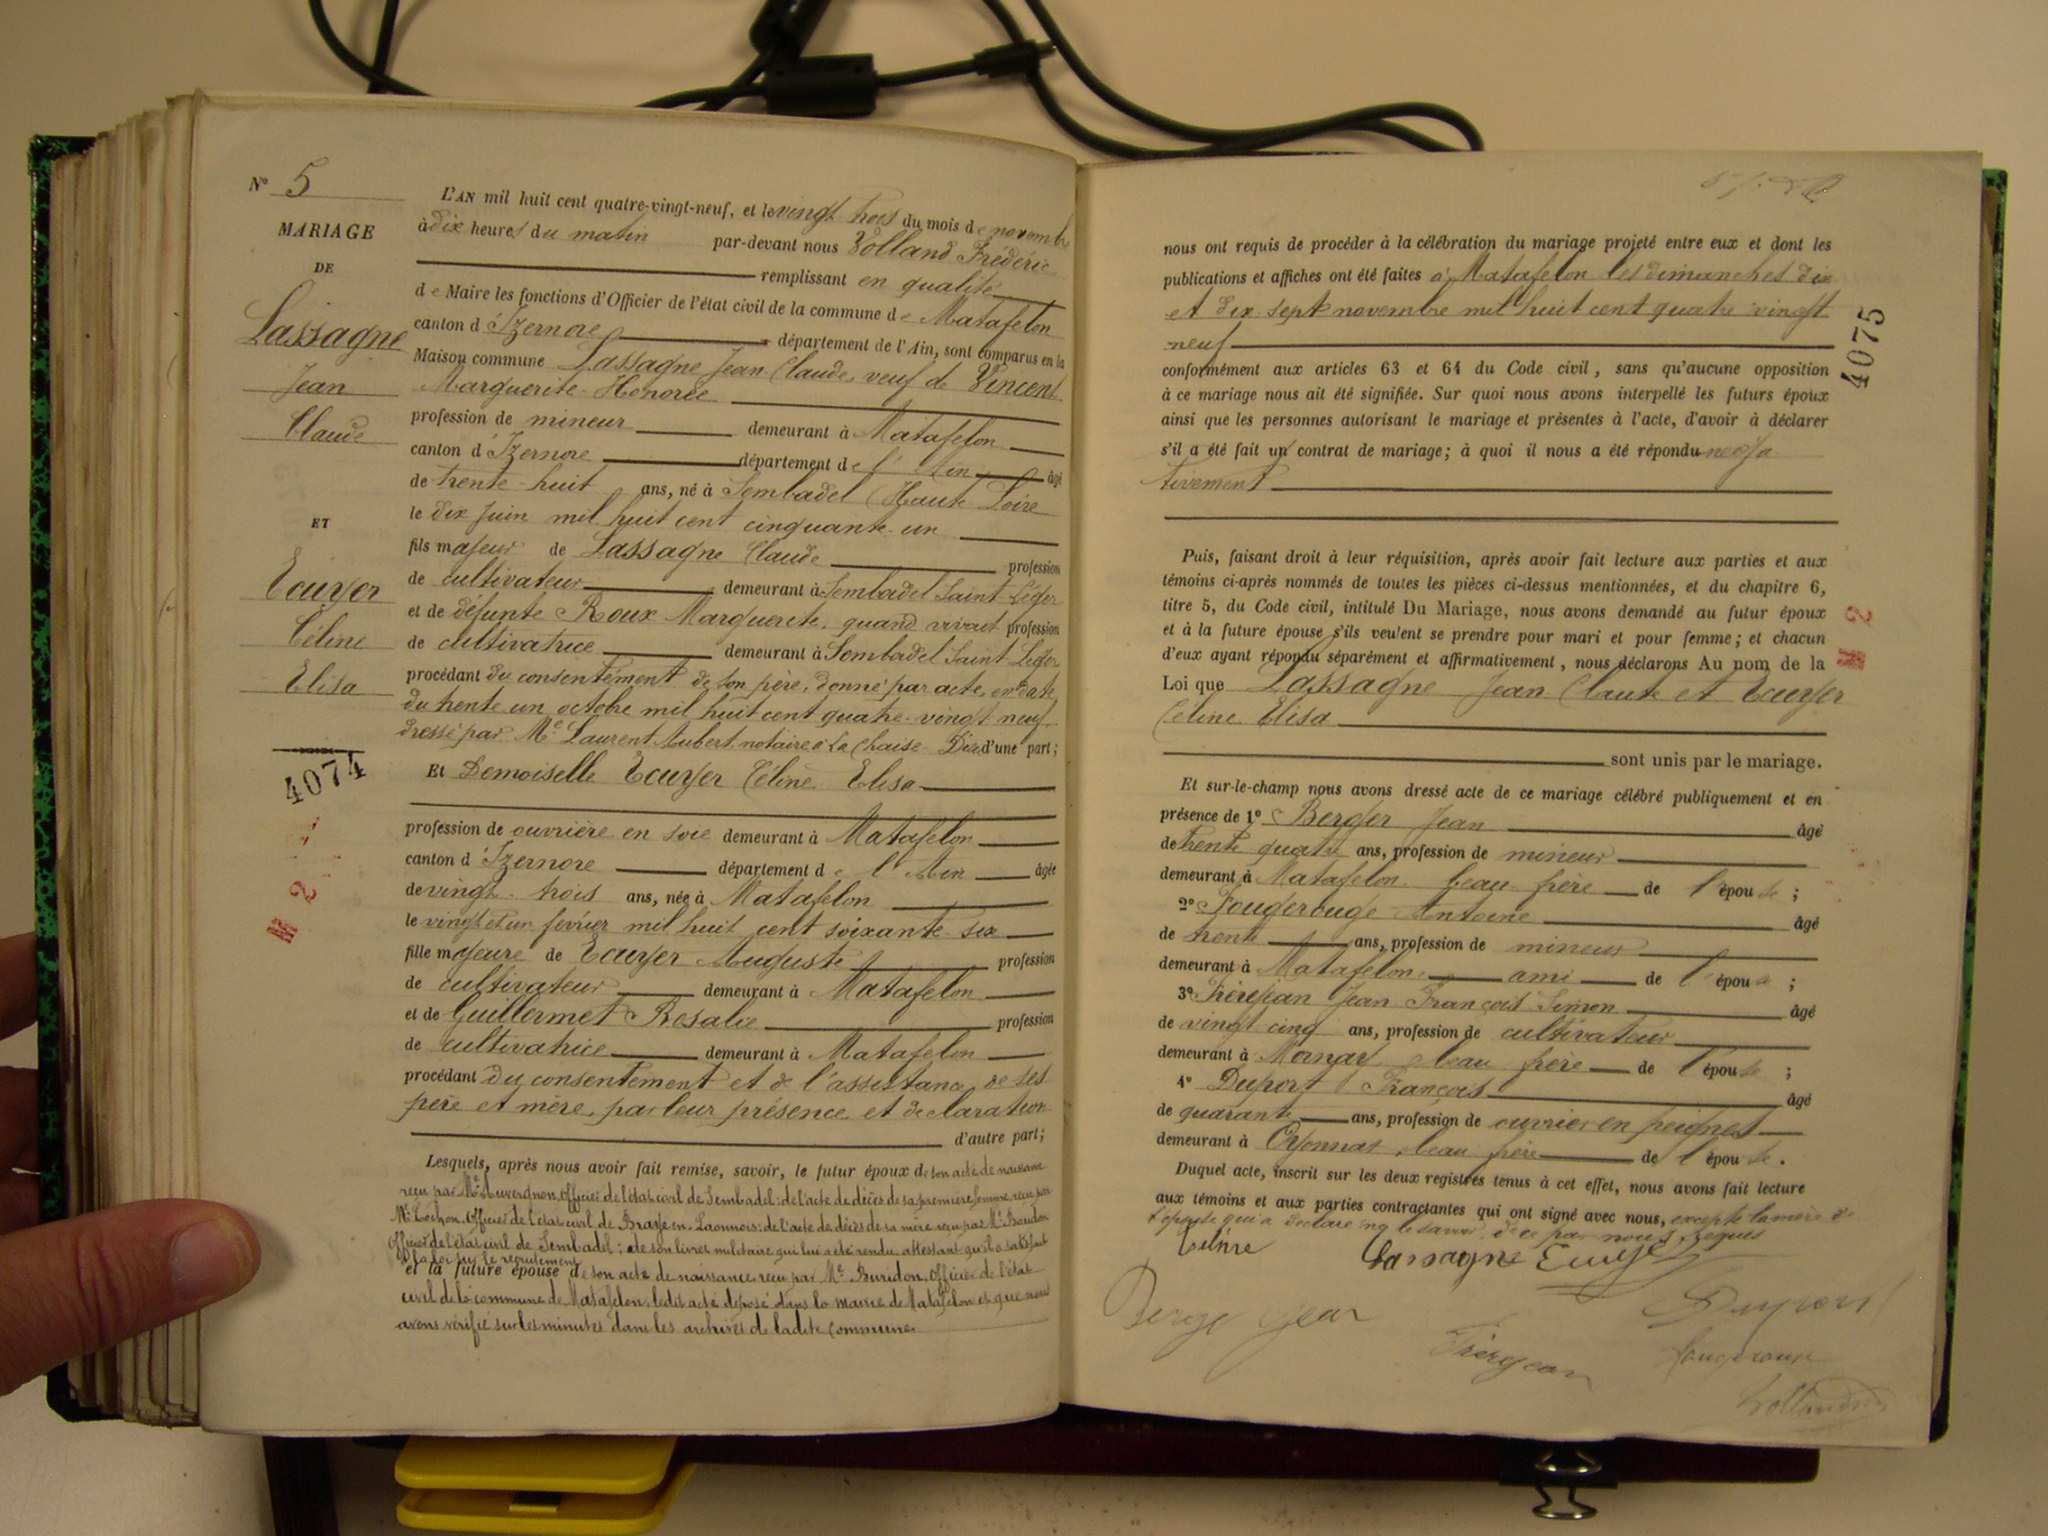 N° 5
MARIAGE
DE
Lassagne
Jean
Claude
ET
Ecuyer
Céline
Elisa
4074
M 2
L'AN mil huit cent quatre-vingt-neuf, et le vingt trois du mois de novembre
à dix heures du matin par-devant nous Volland Frédéric
remplissant en qualité
de Maire les fonctions d'Officier de l'état civil de la commune de Matafelon
canton d'Izernore département de l'Ain, sont comparus en la
Maison commune Lassagne Jean Claude, veuf de Vincent
Marguerite Honorée
profession de mineur demeurant à Matafelon
canton d'Izernore département de l'Ain âgé
de trente-huit ans, né à Sembadel (Haute Loire
le dix juin mil huit cent cinquante-un
fils majeur de Lassagne Claude profession
de cultivateur demeurant à Sembadel Saint-Léger
et de défunte Roux Marguerite, quand vivait profession
de cultivatrice demeurant à Sembadel Saint Léger
procédant du consentement de son père, donné par acte, en date
du trente un octobre mil huit cent quatre-vingt neuf
dressé par Me Laurent Aubert notaire à La Chaise-Dieu d'une part;
Et Demoiselle Ecuyer Céline Elisa
profession de ouvrière en soie demeurant à Matafelon
canton d'Izernore département de l'Ain âgée
de vingt-trois ans, née à Matafelon
le vingt et un février mil huit cent soixante-six
fille majeure de Ecuyer Auguste profession
de cultivateur demeurant à Matafelon
et de Guillermet Rosalie profession
de cultivatrice demeurant à Matafelon
procédant du consentement et de l'assistance de ses
père et mère, par leur présence et déclaration
d'autre part;
Lesquels, après nous avoir fait remise, savoir, le futur époux de son acte de naissance
reçu par Mr Auvergnon, officier de l'état civil de Sembadel; de l'acte de décès de sa première femme, reçu par
Mr Cochon, Officier de l'état civil de Braye en Laonnois; de l'acte de décès de sa mère reçu par Mr Boudon
Officier de l'état civil de Sembadel; de son livret militaire qui lui a été rendu attestant qu'il a satisfait
à la loi sur le recrutement
et la future épouse de son acte de naissance reçu par Mr Buridon, Officier de l'état
civil de la commune de Matafelon, ledit acte déposé dans la mairie de Matafelon et que nous
avons vérifié sur les minutes dans les archives de ladite commune
nous ont requis de procéder à la célébration du mariage projeté entre eux et dont les
publications et affiches ont été faites à Matafelon les dimanches dix
et dix-sept novembre mil huit cent quatre vingt
neuf
conformément aux articles 63 et 64 du Code civil, sans qu'aucune opposition
à ce mariage nous ait été signifiée. Sur quoi nous avons interpellé les futurs époux
ainsi que les personnes autorisant le mariage et présentes à l'acte, d'avoir à déclarer
s'il a été fait un contrat de mariage; à quoi il nous a été répondu néga
tivement
4075
Puis, faisant droit à leur réquisition, après avoir fait lecture aux parties et aux
témoins ci-après nommés de toutes les pièces ci-dessus mentionnées, et du chapitre 6,
titre 5, du Code civil, intitulé Du Mariage, nous avons demandé au futur époux
et à la future épouse s'ils veulent se prendre pour mari et pour femme; et chacun
d'eux ayant répondu séparément et affirmativement, nous déclarons Au nom de la
Loi que Lassagne Jean Claute et Ecuyer
Céline Elisa
sont unis par le mariage.
M 2
Et sur-le-champ nous avons dressé acte de ce mariage célébré publiquement et en
présence de 1° Berger Jean âgé
de trente quatre ans, profession de mineur
demeurant à Matafelon beau-frère de l'épouse;
2° Fougerouge Antoine âgé
de trente ans, profession de mineur
demeurant à Matafelon ami de l'époux;
3° Frèrejean Jean François Simon âgé
de vingt cinq ans, profession de cultivateur
demeurant à Mornay beau frère de l'épouse;
4° Duport François âgé
de quarante ans, profession de ouvrier en peignes
demeurant à Oyonnax, beau frère de l'épouse.
Duquel acte, inscrit sur les deux registres tenus à cet effet, nous avons fait lecture
aux témoins et aux parties contractantes qui ont signé avec nous, excepté la mère de
l'épouse qui a déclaré ne le savoir, de ce par nous requis
Céline Lassagne Ecuyer
Berge Jean Duport
Frèrejean Fougerouse
Volland